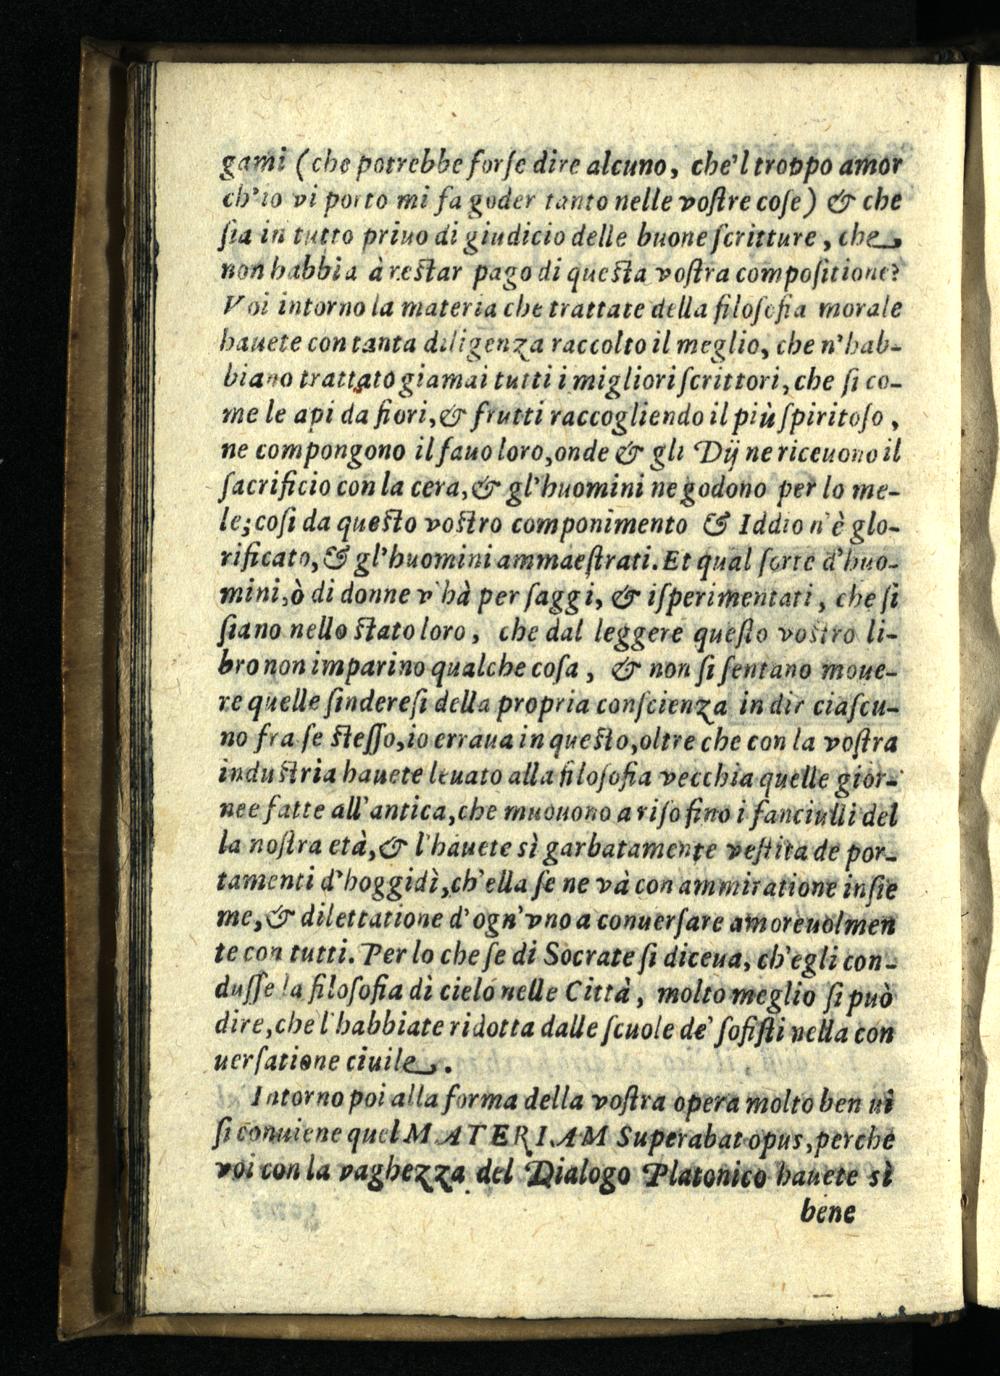 gami (che potrebbe forſe dire alcuno, che'l troppo amor
ch'io vi porto mi fa goder tanto nelle voſtre coſe) & che
ſia in tutto priuo di giudicio delle buone ſcritture, che
non habbia à reſtar pago di queſta voſtra compoſitione?
Voi intorno la materia che trattate della filoſofia morale
hauete con tanta diligenza raccolto il meglio, che n'hab-
biano trattato giamai tutti i migliori ſcrittori, che ſi co-
me le api da fiori, & frutti raccogliendo il più ſpiritoſo,
ne compongono il fauo loro, onde & gli Dij ne riceuono il
ſacrificio con la cera, & gl'huomini ne godono per lo me-
le; coſi da queſto voſtro componimento & Iddio n'è glo-
rificato, & gl'huomini ammaeſtrati. Et qual ſorte d'huo-
mini, ò di donne v'hà per ſaggi, & iſperimentati, che ſi
ſiano nello ſtato loro, che dal leggere queſto voſtro li-
bro non imparino qualche coſa, & non ſi ſentano moue-
re quelle ſindereſi della propria conſcienza in dir ciaſcu-
no fra ſe ſteſſo, io erraua in queſto, oltre che con la voſtra
induſtria hauete leuato alla filoſofia vecchia quelle gior-
nee fatte all'antica, che muouono a riſo fino i fanciulli del
la noſtra età, & l'hauete sì garbatamente veſtita de por-
tamenti d'hoggidì, ch'ella ſe ne và con ammiratione inſie
me, & dilettatione d'ogn'vno a conuerſare amoreuolmen
te con tutti. Per lo che ſe di Socrate ſi diceua, ch'egli con-
duſſe la filoſofia di cielo nelle Città, molto meglio ſi può
dire, che l'habbiate ridotta dalle ſcuole de' ſofiſti nella con
uerſatione ciuile.
Intorno poi alla forma della voſtra opera molto ben ui
ſi conuiene quel MATERIAM Superabat opus, perche
voi con la vaghezza del Dialogo Platonico hauete sì
bene